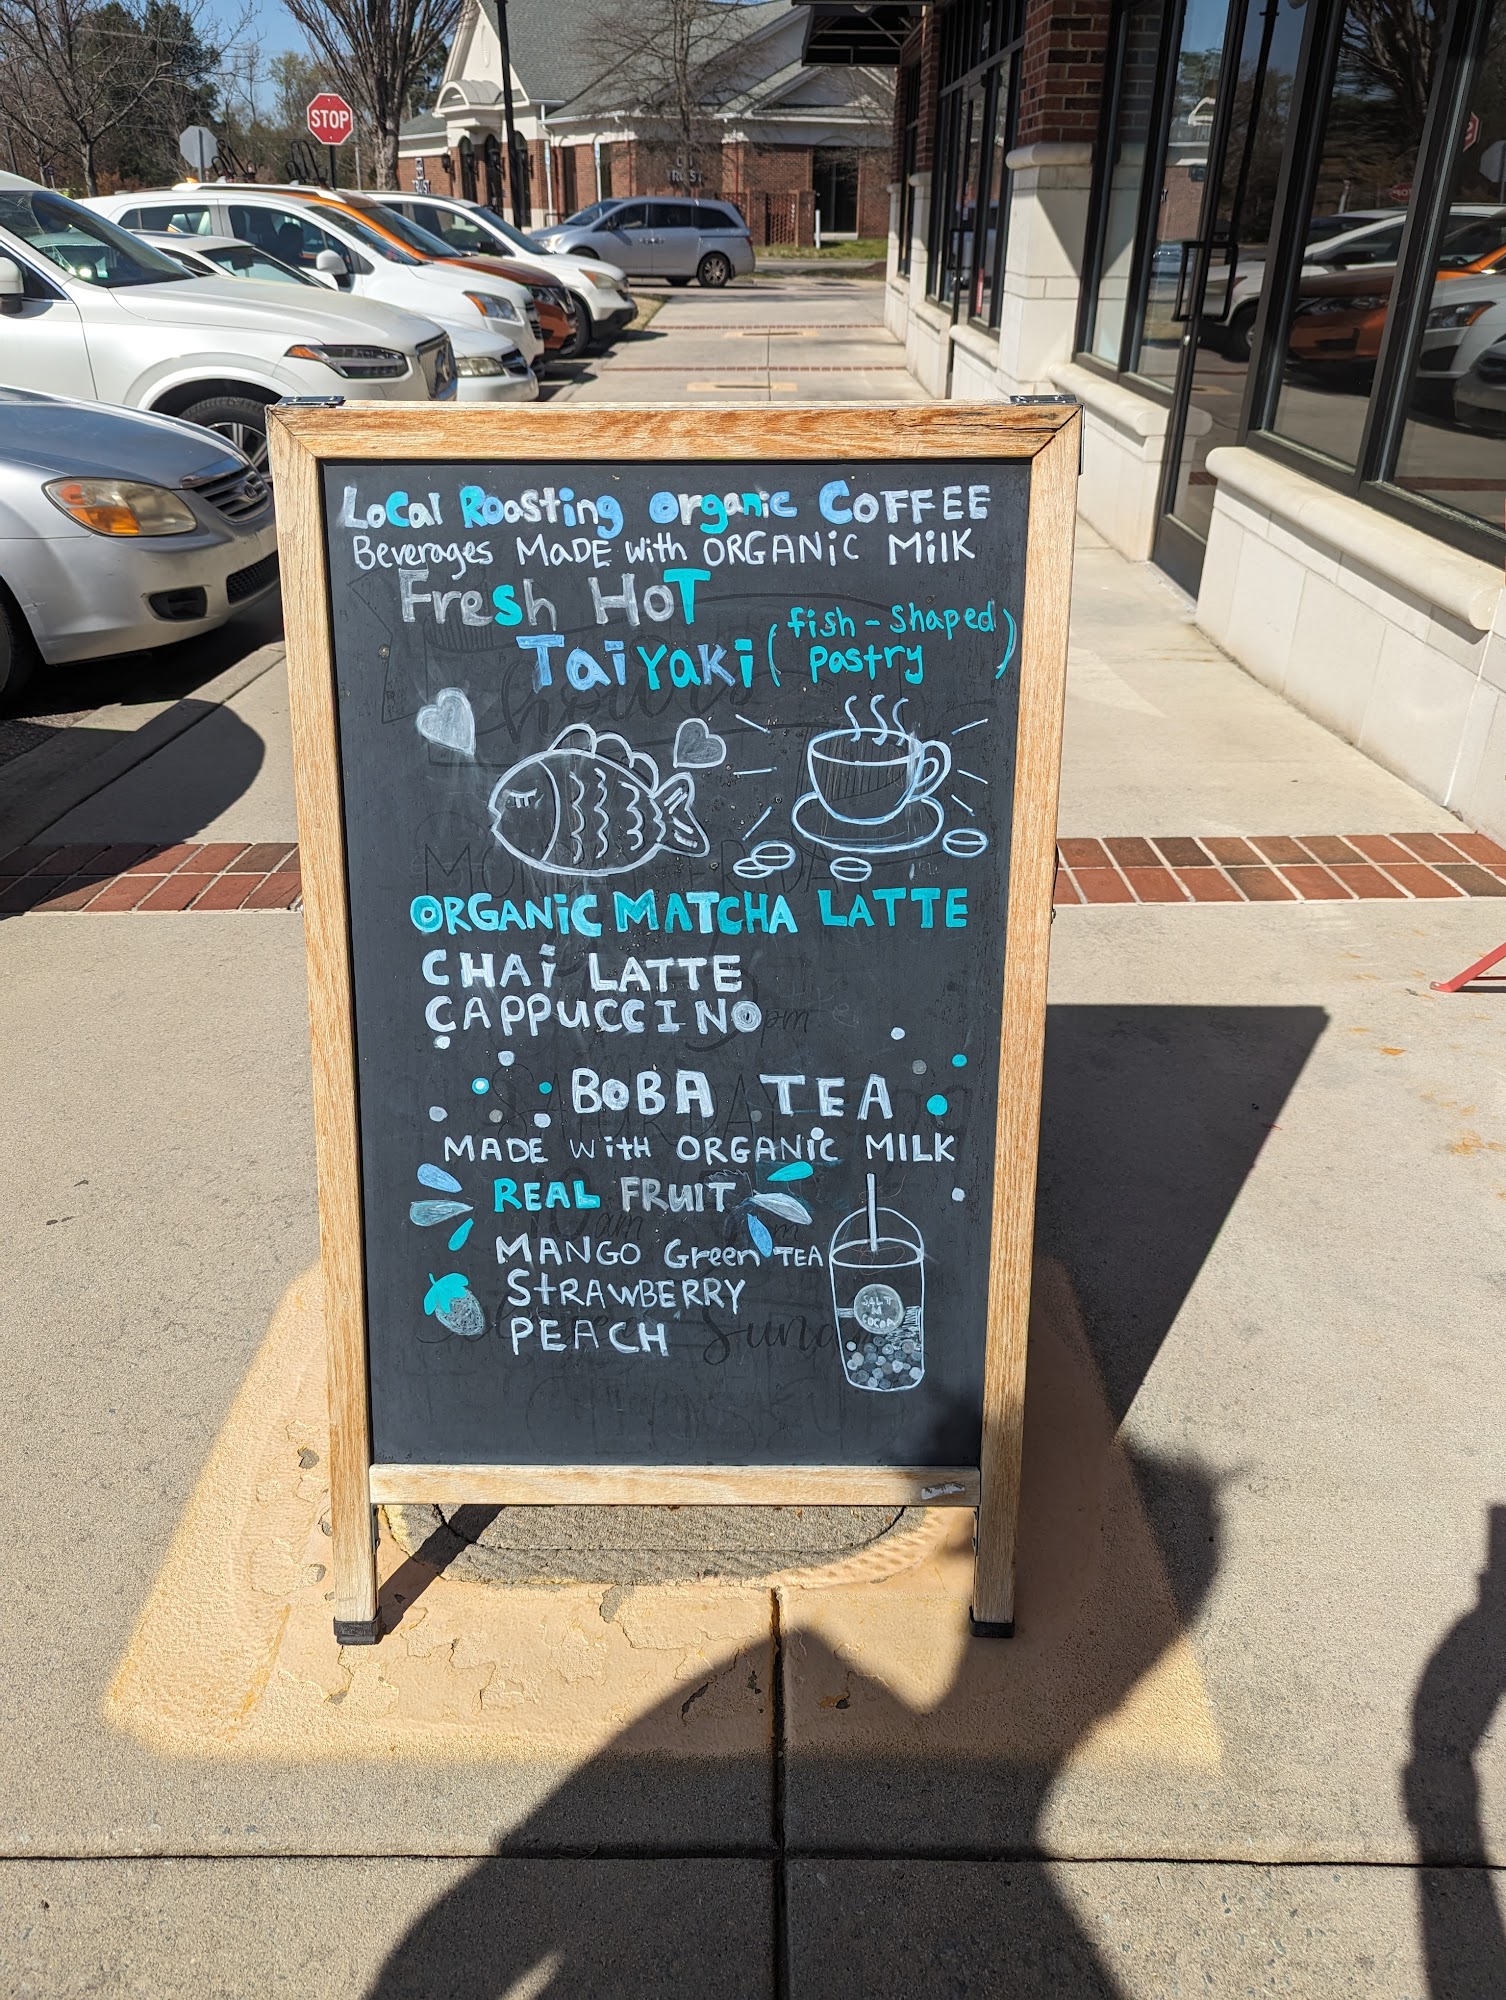 STOP
TRUIST
LoCal Roasting organic COFFEE
Beverages MaDE with ORGANiC MiLK
Fresh HoT
TaiYaki (fish-shaped pastry)
ORGANiC MATCHA LATTE
CHAi LATTE
CAPPUCCINO
BOBA TEA
MADE WitH ORGANiC MILK
REAL FRUIT
MANGO Green TEA
StRAWBERRY
PEACH
SALT
N
COCOA